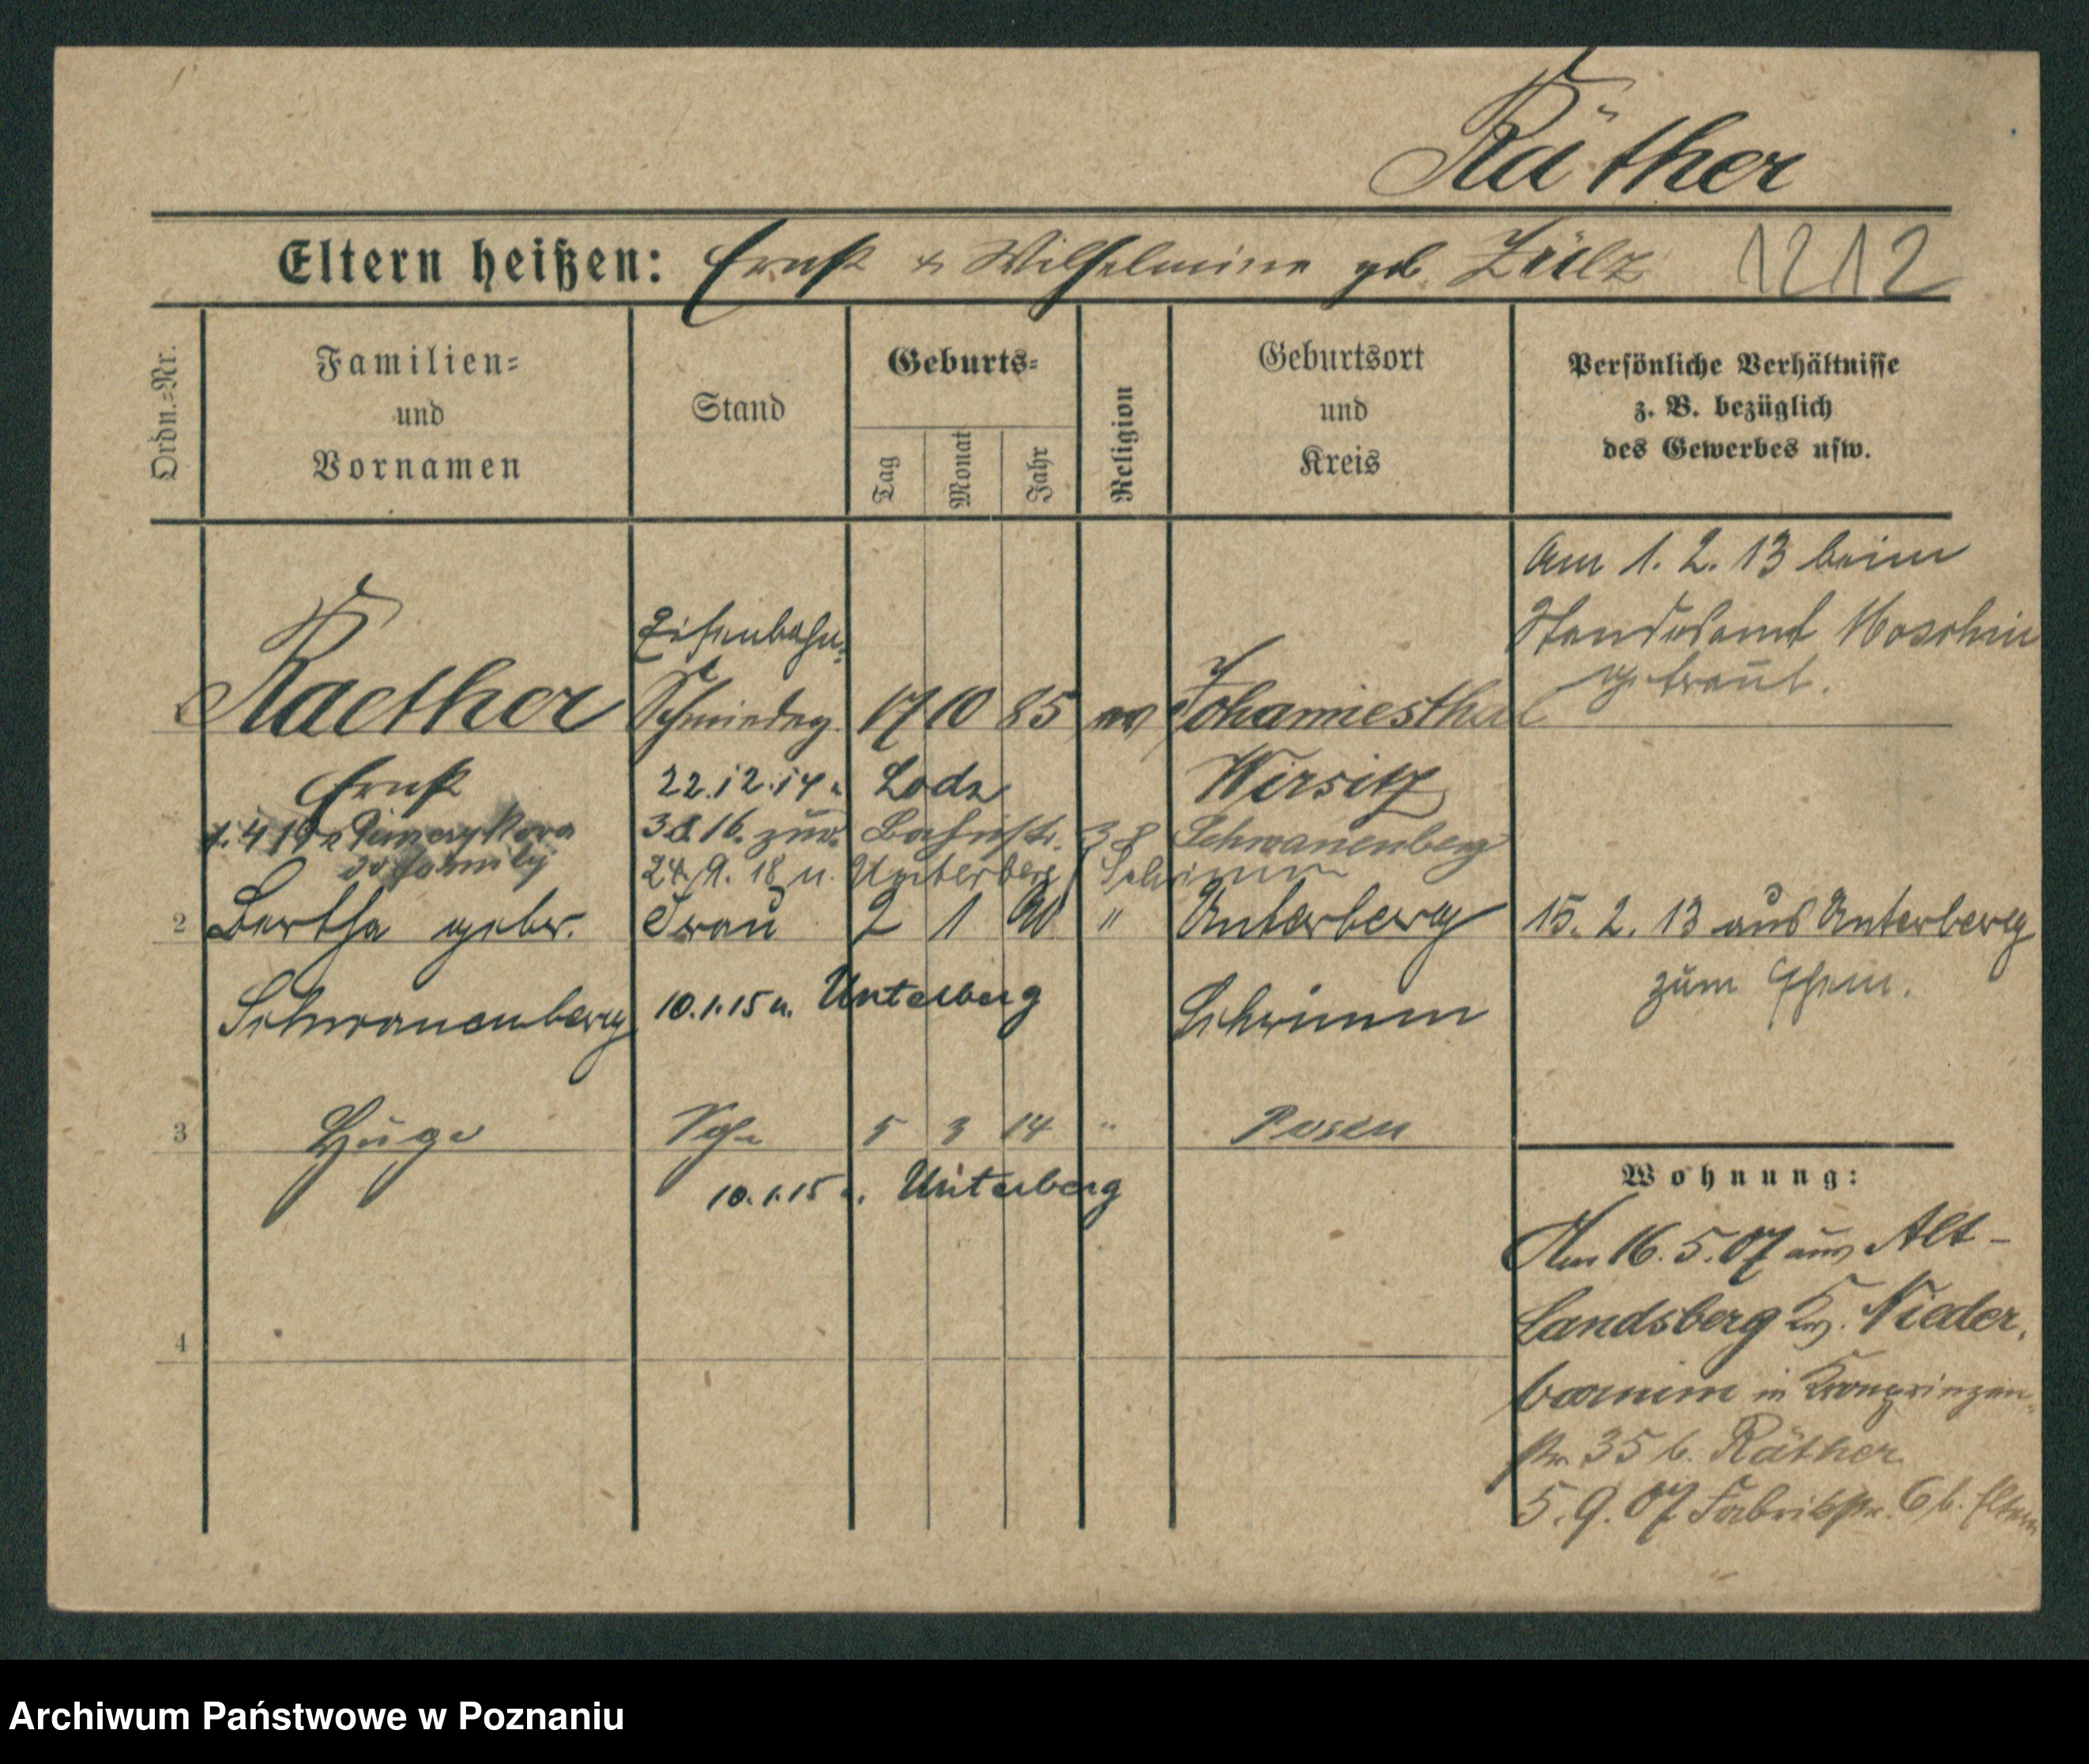 Räther
Eltern heißen: Ernst & Wilhelmine geb. Zülz 1212
Ordn.=Nr.
Familien=
und
Vornamen
Stand
Geburts=
Tag
Monat
Jahr
Religion
Geburtsort
und
Kreis
Persönliche Verhältnisse
z. B. bezüglich
des Gewerbes usw.
Am 1. 2. 13 beim
Standesamt Moschin
getraut.
Eisenbahn=
Raether Schmied 17 10 85 ev Johannesthal
Ernst 22.12.14 Lodz Wirsitz
3.8.16. zur. Bahnstr. 38 Schwanenberg
do familij
24/9. 18 u. Unterberg / Schrimm
2 Bertha gebr. Frau 2 1 90 " Unterberg 15. 2. 13 aus Unterberg
zum Ehem.
Schwanenberg 10.1.15 u. Unterberg Schrimm
3 Hugo Sohn 5 3 14 " Posen
10.1.15 u. Unterberg
4
Wohnung:
Am 16. 5. 07 aus Alt-
Landsberg Kr. Nieder-
barnim in Kronprinzen-
str. 35 b. Räther
5. 9. 07 Fabrikstr. 6 b. Eltern
Archiwum Państwowe w Poznaniu